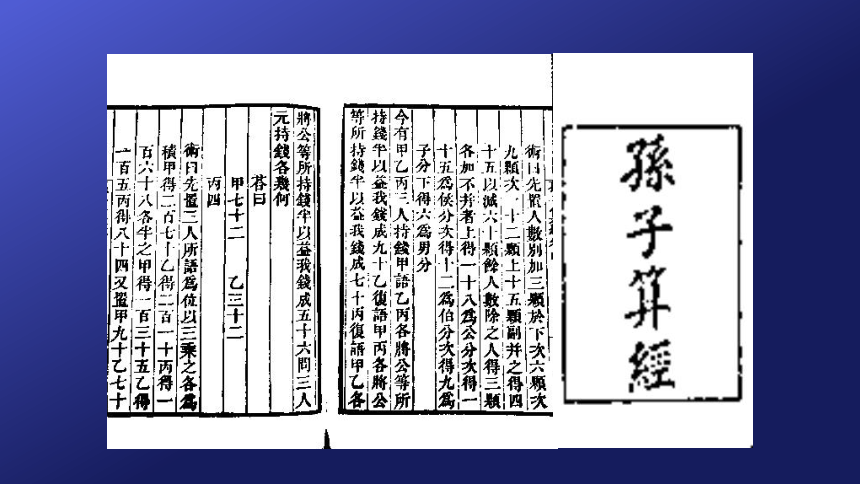 孫子算經
術曰先置人數別加三顆於下次六顆次
九顆次一十二顆上十五顆副并之得四
十五以減六十顆餘人數除之人得三顆
各加不并者上得一十八為公分次得一
十五為侯分次得十二為伯分次得九為
子分下得六為男分
今有甲乙丙三人持錢甲語乙丙各將公等所
持錢半以益我錢成九十乙復語甲丙各將公
等所持錢半以益我錢成七十丙復語甲乙各
將公等所持錢半以益我錢成五十六問三人
元持錢各幾何
荅曰
甲七十二 乙三十二
丙四
術曰先置三人所語為位以三乘之各為
積甲得二百七十乙得二百一十丙得一
百六十八各半之甲得一百三十五乙得
一百五丙得八十四又置甲九十乙七十